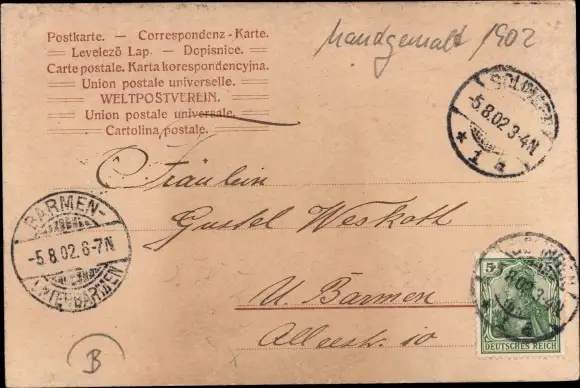 Postkarte. — Correspondenz-Karte.
Levelező Lap. — Dopisnice.
Carte postale. Karta korespondencyjna.
Union postale universelle.
WELTPOSTVEREIN.
Union postale universale.
Cartolina postale.
Handgemalt 1902
-5.8.02.3-4N.
* 1 a *
Fräulein
Gustel Weskoth
U. Barmen
Alleestr. 10
BARMEN-
-5.8.02.6-7N
UNTERBARMEN
5
DEUTSCHES REICH
B